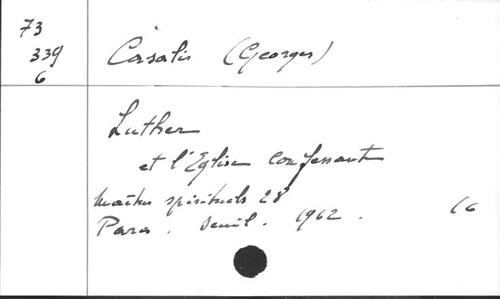 73
339
6
Casalis (Georges)
Luther
et l'Eglise confessante
Maîtres spirituels 28
Paris. Seuil. 1962. 16